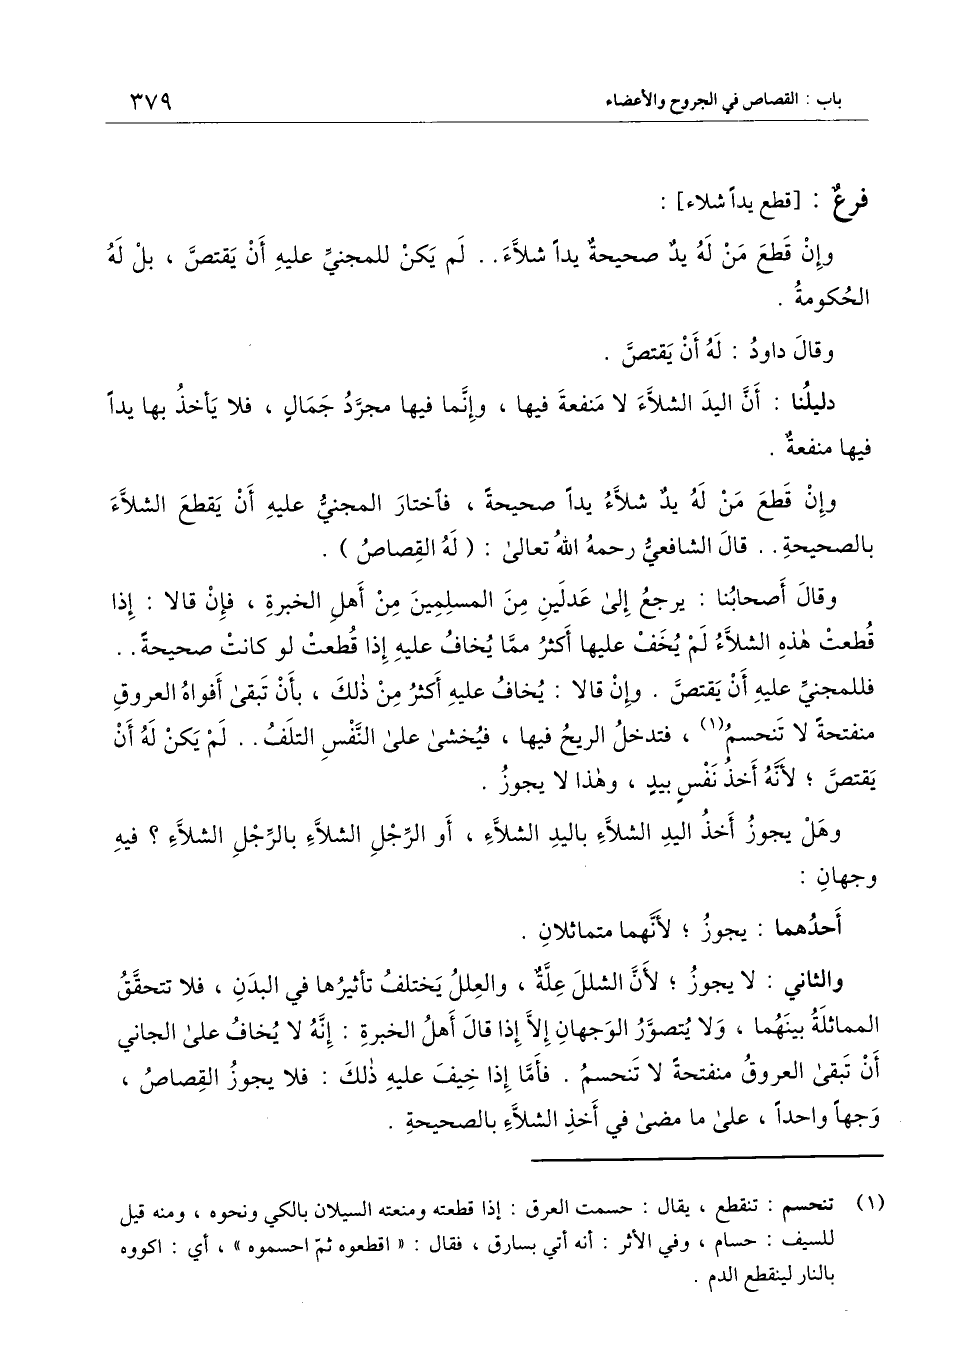 باب : القصاص في الجروح والأعضاء ٣٧٩
فرعٌ : [قطع يداً شلاء] :
وإِنْ قَطَعَ مَنْ لَهُ يدٌ صحيحةٌ يداً شلاَّءَ . . لَم يَكنْ للمجنيِّ عليهِ أَنْ يَقتصَّ ، بلْ لَهُ
الحُكومةُ .
وقالَ داودُ : لَهُ أَنْ يَقتصَّ .
دليلُنا : أَنَّ اليدَ الشلاَّءَ لا مَنفعةَ فيها ، وإِنَّما فيها مجرَّدُ جَمَالٍ ، فلا يَأخذُ بها يداً
فيها منفعةٌ .
وإِنْ قَطَعَ مَنْ لَهُ يدٌ شلاَّءُ يداً صحيحةً ، فٱختارَ المجنيُّ عليهِ أَنْ يَقطعَ الشلاَّءَ
بالصحيحةِ . . قالَ الشافعيُّ رحمهُ اللهُ تعالىٰ : ( لَهُ القِصاصُ ) .
وقالَ أَصحابُنا : يرجعُ إِلىٰ عَدلَينِ مِنَ المسلِمِينَ مِنْ أَهلِ الخبرةِ ، فإِنْ قالا : إِذا
قُطعتْ هٰذهِ الشلاَّءُ لَمْ يُخَفْ عليها أَكثرُ ممَّا يُخافُ عليهِ إِذا قُطعتْ لو كانتْ صحيحةً . .
فللمجنيِّ عليهِ أَنْ يَقتصَّ . وإِنْ قالا : يُخافُ عليهِ أَكثرُ مِنْ ذٰلكَ ، بأَنْ تَبقىٰ أَفواهُ العروقِ
منفتحةً لا تَنحسمُ(١) ، فتدخلُ الريحُ فيها ، فيُخشىٰ علىٰ النَّفْسِ التلَفُ . . لَمْ يَكنْ لَهُ أَنْ
يَقتصَّ ؛ لأَنَّهُ أَخذُ نَفْسٍ بيدٍ ، وهٰذا لا يجوزُ .
وهَلْ يجوزُ أَخذُ اليدِ الشلاَّءِ باليدِ الشلاَّءِ ، أَو الرِّجْلِ الشلاَّءِ بالرِّجْلِ الشلاَّءِ ؟ فيهِ
وجهانِ :
أَحدُهما : يجوزُ ؛ لأَنَّهما متماثلانِ .
والثاني : لا يجوزُ ؛ لأَنَّ الشللَ عِلَّةٌ ، والعِللُ يَختلفُ تأثيرُها في البدَنِ ، فلا تتحقَّقُ
المماثلَةُ بينَهُما ، وَلا يُتصوَّرُ الوَجهانِ إِلاَّ إِذا قالَ أَهلُ الخبرةِ : إِنَّهُ لا يُخافُ علىٰ الجاني
أَنْ تَبقىٰ العروقُ منفتحةً لا تَنحسمُ . فأَمَّا إِذا خِيفَ عليهِ ذٰلكَ : فلا يجوزُ القِصاصُ ،
وَجهاً واحداً ، علىٰ ما مضىٰ في أَخذِ الشلاَّءِ بالصحيحةِ .
(١) تنحسم : تنقطع ، يقال : حسمت العرق : إذا قطعته ومنعته السيلان بالكي ونحوه ، ومنه قيل
للسيف : حسام ، وفي الأثر : أنه أتي بسارق ، فقال : « اقطعوه ثمّ احسموه » ، أي : اكووه
بالنار لينقطع الدم .